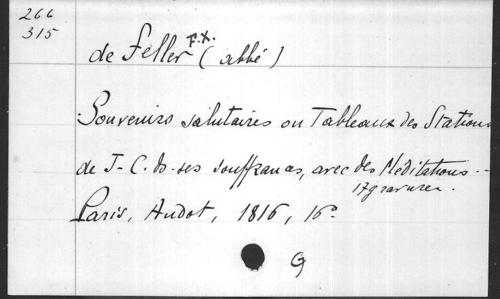 266
315
de Feller F.X. (abbé)
Souvenirs salutaires ou Tableaux des Stations
de J-C. ds. ses souffrances, avec des Méditations.
17 gravures.
Paris, Audot, 1816, 16º
G